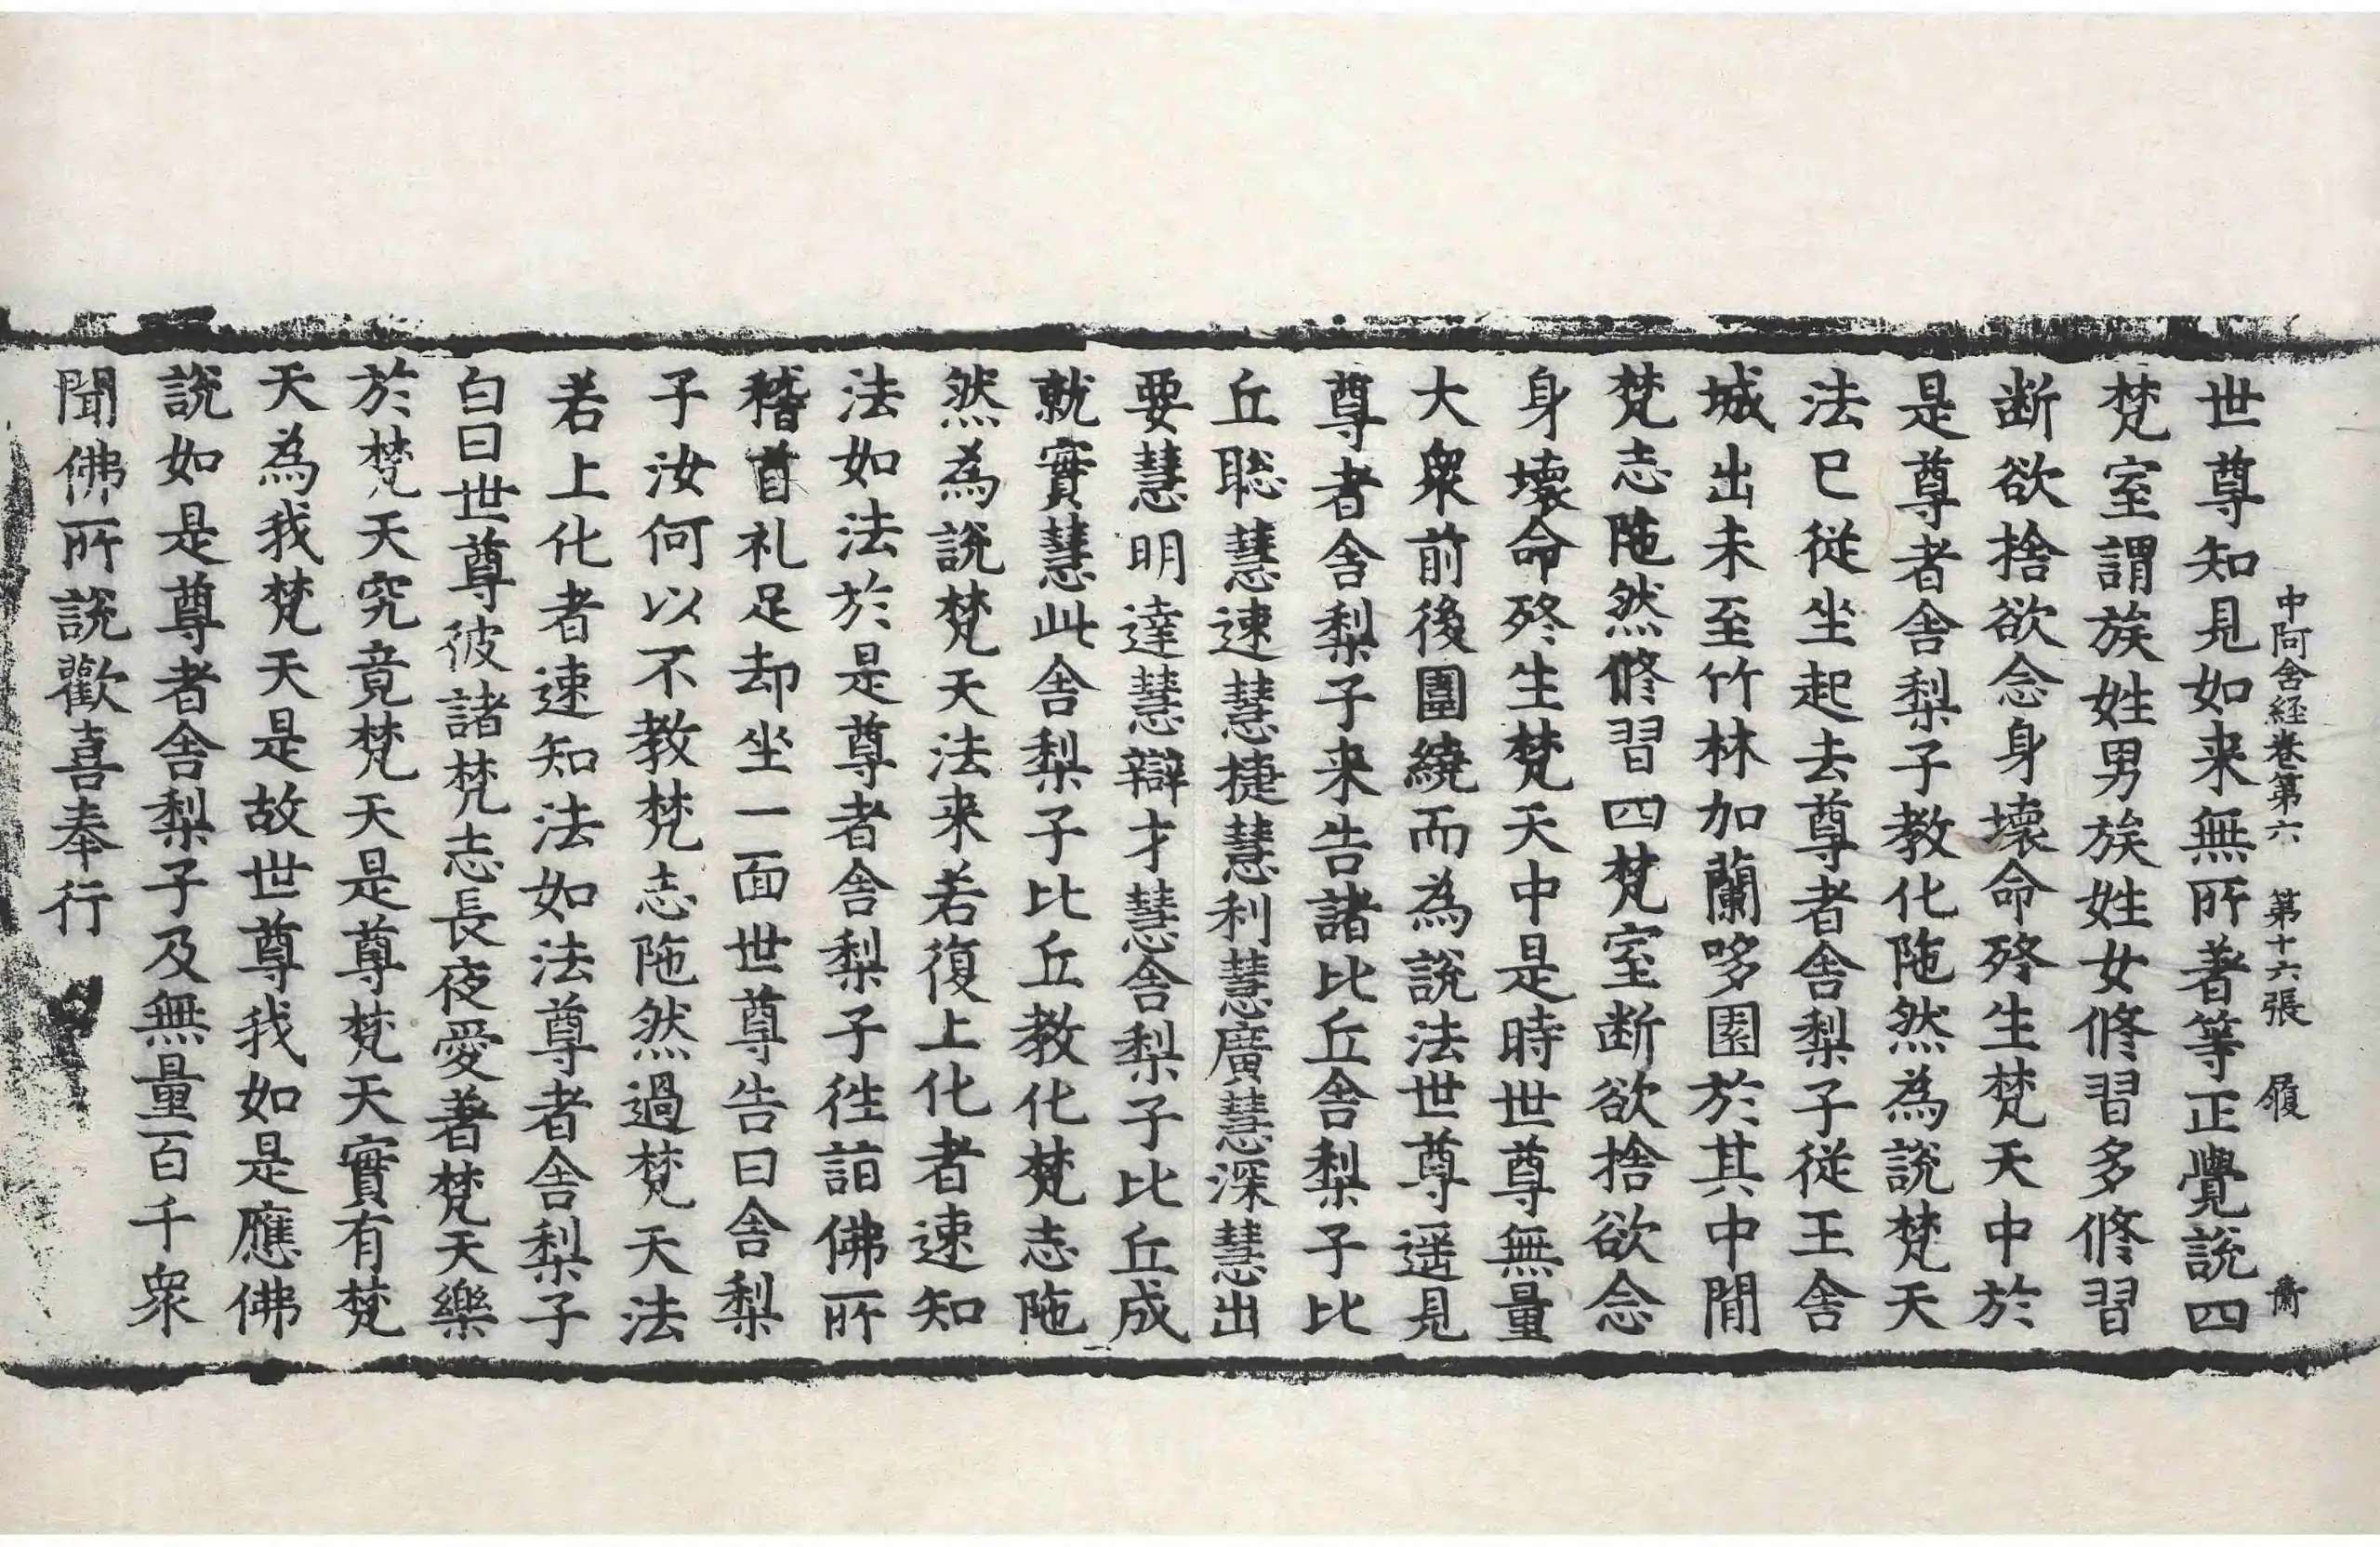 中阿含経卷第六 第十六張 履
世尊知見如来無所著等正覺說四
梵室謂族姓男族姓女修習多修習
断欲捨欲念身壞命終生梵天中於
是尊者舎梨子教化陁然為說梵天
法已從坐起去尊者舎梨子從王舎
城出未至竹林加蘭哆園於其中間
梵志陁然修習四梵室断欲捨欲念
身壞命終生梵天中是時世尊無量
大衆前後圍繞而為說法世尊遥見
尊者舎梨子来告諸比丘舎梨子比
丘聡慧速慧捷慧利慧廣慧深慧出
要慧明達慧辯才慧舎梨子比丘成
就實慧此舎梨子比丘教化梵志陁
然為說梵天法来若復上化者速知
法如法於是尊者舎梨子徃詣佛所
稽首礼足却坐一面世尊告曰舎梨
子汝何以不教梵志陁然過梵天法
若上化者速知法如法尊者舎梨子
白曰世尊彼諸梵志長夜愛著梵天樂
於梵天究竟梵天是尊梵天實有梵
天為我梵天是故世尊我如是應佛
說如是尊者舎梨子及無量百千衆
聞佛所說歡喜奉行